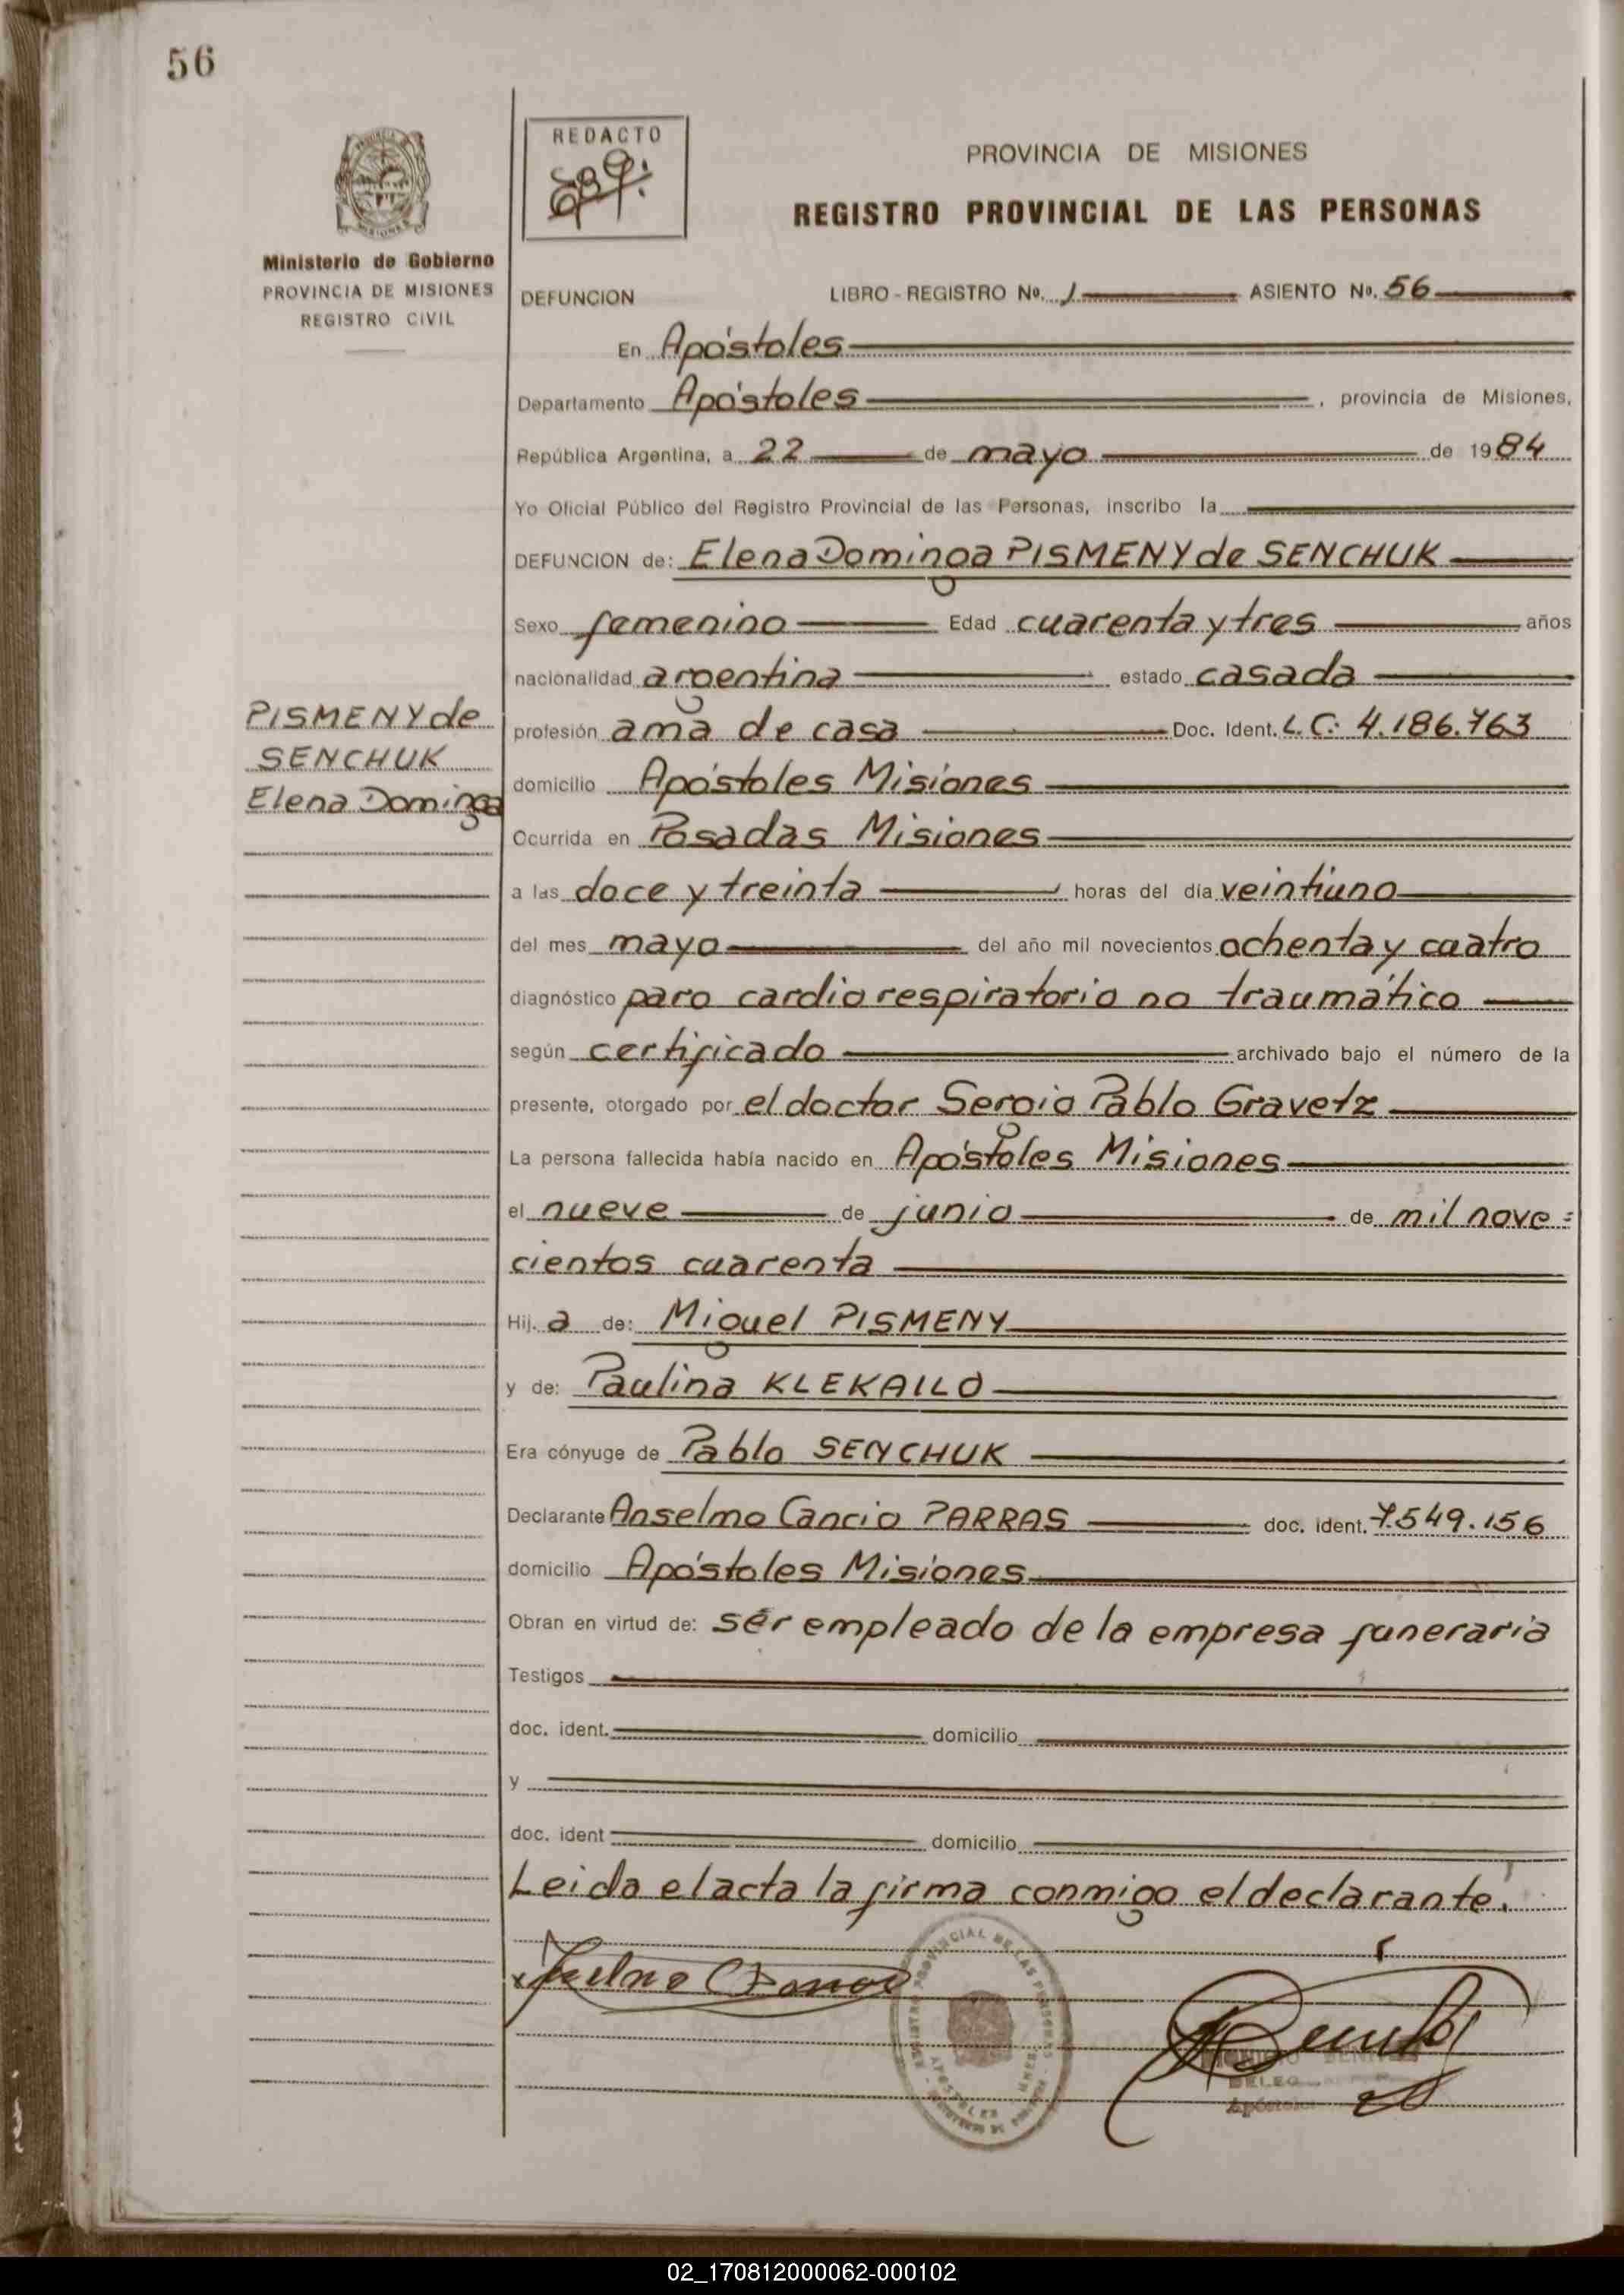 56
REDACTO
Ministerio de Gobierno
PROVINCIA DE MISIONES
REGISTRO CIVIL
PROVINCIA DE MISIONES
REGISTRO PROVINCIAL DE LAS PERSONAS
DEFUNCION LIBRO - REGISTRO Nº. 1 ASIENTO Nº. 56
En Apóstoles
Departamento Apóstoles, provincia de Misiones,
República Argentina, a 22 de mayo de 1984
Yo Oficial Público del Registro Provincial de las Personas, inscribo la
DEFUNCION de: Elena Dominga PISMENY de SENCHUK
Sexo femenino Edad cuarenta y tres años
nacionalidad argentina estado casada
PISMENY de
SENCHUK
Elena Dominga
profesión ama de casa Doc. Ident. L.C: 4.186.763
domicilio Apóstoles Misiones
Ocurrida en Posadas Misiones
a las doce y treinta horas del día veintiuno
del mes mayo del año mil novecientos ochenta y cuatro
diagnóstico paro cardio respiratorio no traumático
según certificado archivado bajo el número de la
presente, otorgado por el doctor Sergio Pablo Gravetz
La persona fallecida había nacido en Apóstoles Misiones
el nueve de junio de mil nove=
cientos cuarenta
Hij. a de: Miguel PISMENY
y de: Paulina KLEKAILO
Era cónyuge de Pablo SENCHUK
Declarante Anselmo Cancio PARRAS doc. ident. 7.549.156
domicilio Apóstoles Misiones
Obran en virtud de: sér empleado de la empresa funeraria
Testigos
doc. ident. domicilio
y
doc. ident domicilio
Leida el acta la firma conmigo el declarante.
02_170812000062-000102